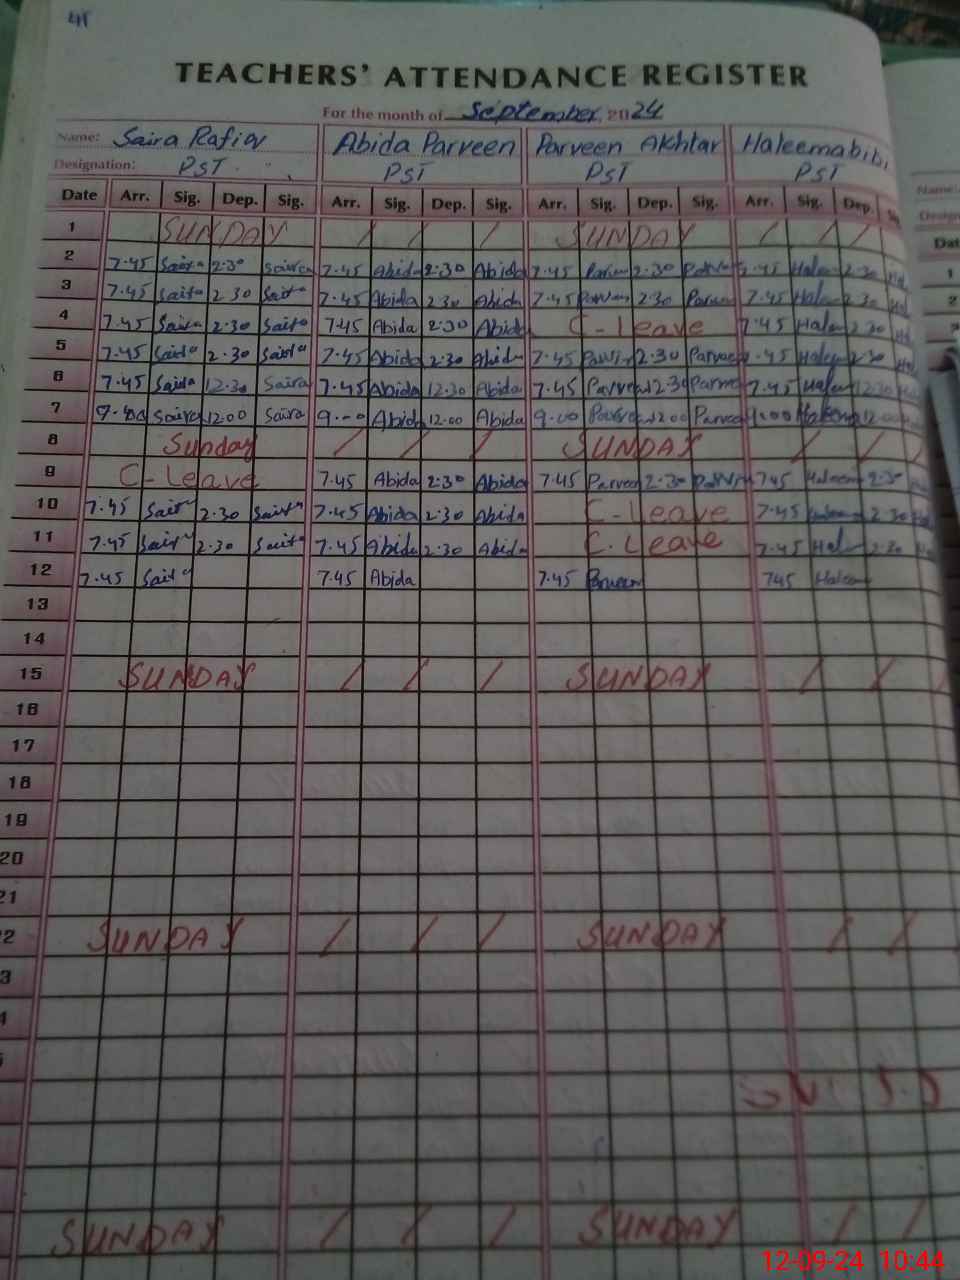 41
TEACHERS' ATTENDANCE REGISTER
For the month of September 2024
Name: Saira Rafiq Abida Parveen Parveen Akhtar Haleemabibi Name:
Designation: PST PST PST PST
Date Arr. Sig. Dep. Sig. Arr. Sig. Dep. Sig. Arr. Sig. Dep. Sig. Arr. Sig. Dep.
1 SUNDAY / / / SUNDAY / / /
2 7.45 Saira 2.30 Saira 7.45 Abida 2.30 Abida 7.45 2.30 7.45 2.30
3 7.45 Saira 2 30 Saira 7.45 Abida 2.30 Abida 7.45 2.30 7.45 2.30
4 7.45 Saira 2.30 Saira 7.45 Abida 2.30 Abida C-Leave 7.45 2.30
5 7.45 Saira 2.30 Saira 7.45 Abida 2.30 Abida 7.45 2.30 7.45 2.30
6 7.45 Saira 12.30 Saira 7.45 Abida 12.30 Abida 7.45 12.30 7.45 12.30
7 Saira 12.00 Saira 9.00 Abida 12.00 Abida 9.00 12.00 12.00
8 Sunday / / / SUNDAY / /
9 C-Leave 7.45 Abida 2.30 Abida 7.45 2.30 745 2.30
10 7.45 2.30 7.45 Abida 2.30 Abida C-Leave 7.45 2.30
11 7.45 2.30 7.45 Abida 2.30 Abida C.Leave 7.45 2.30
12 7.45 7.45 Abida 7.45 745
13
14
15 SUNDAY / / / SUNDAY / /
16
17
18
19
20
21
SUNDAY / / / SUNDAY / /
SUNDAY / / / SUNDAY / /
12-09-24 10:44